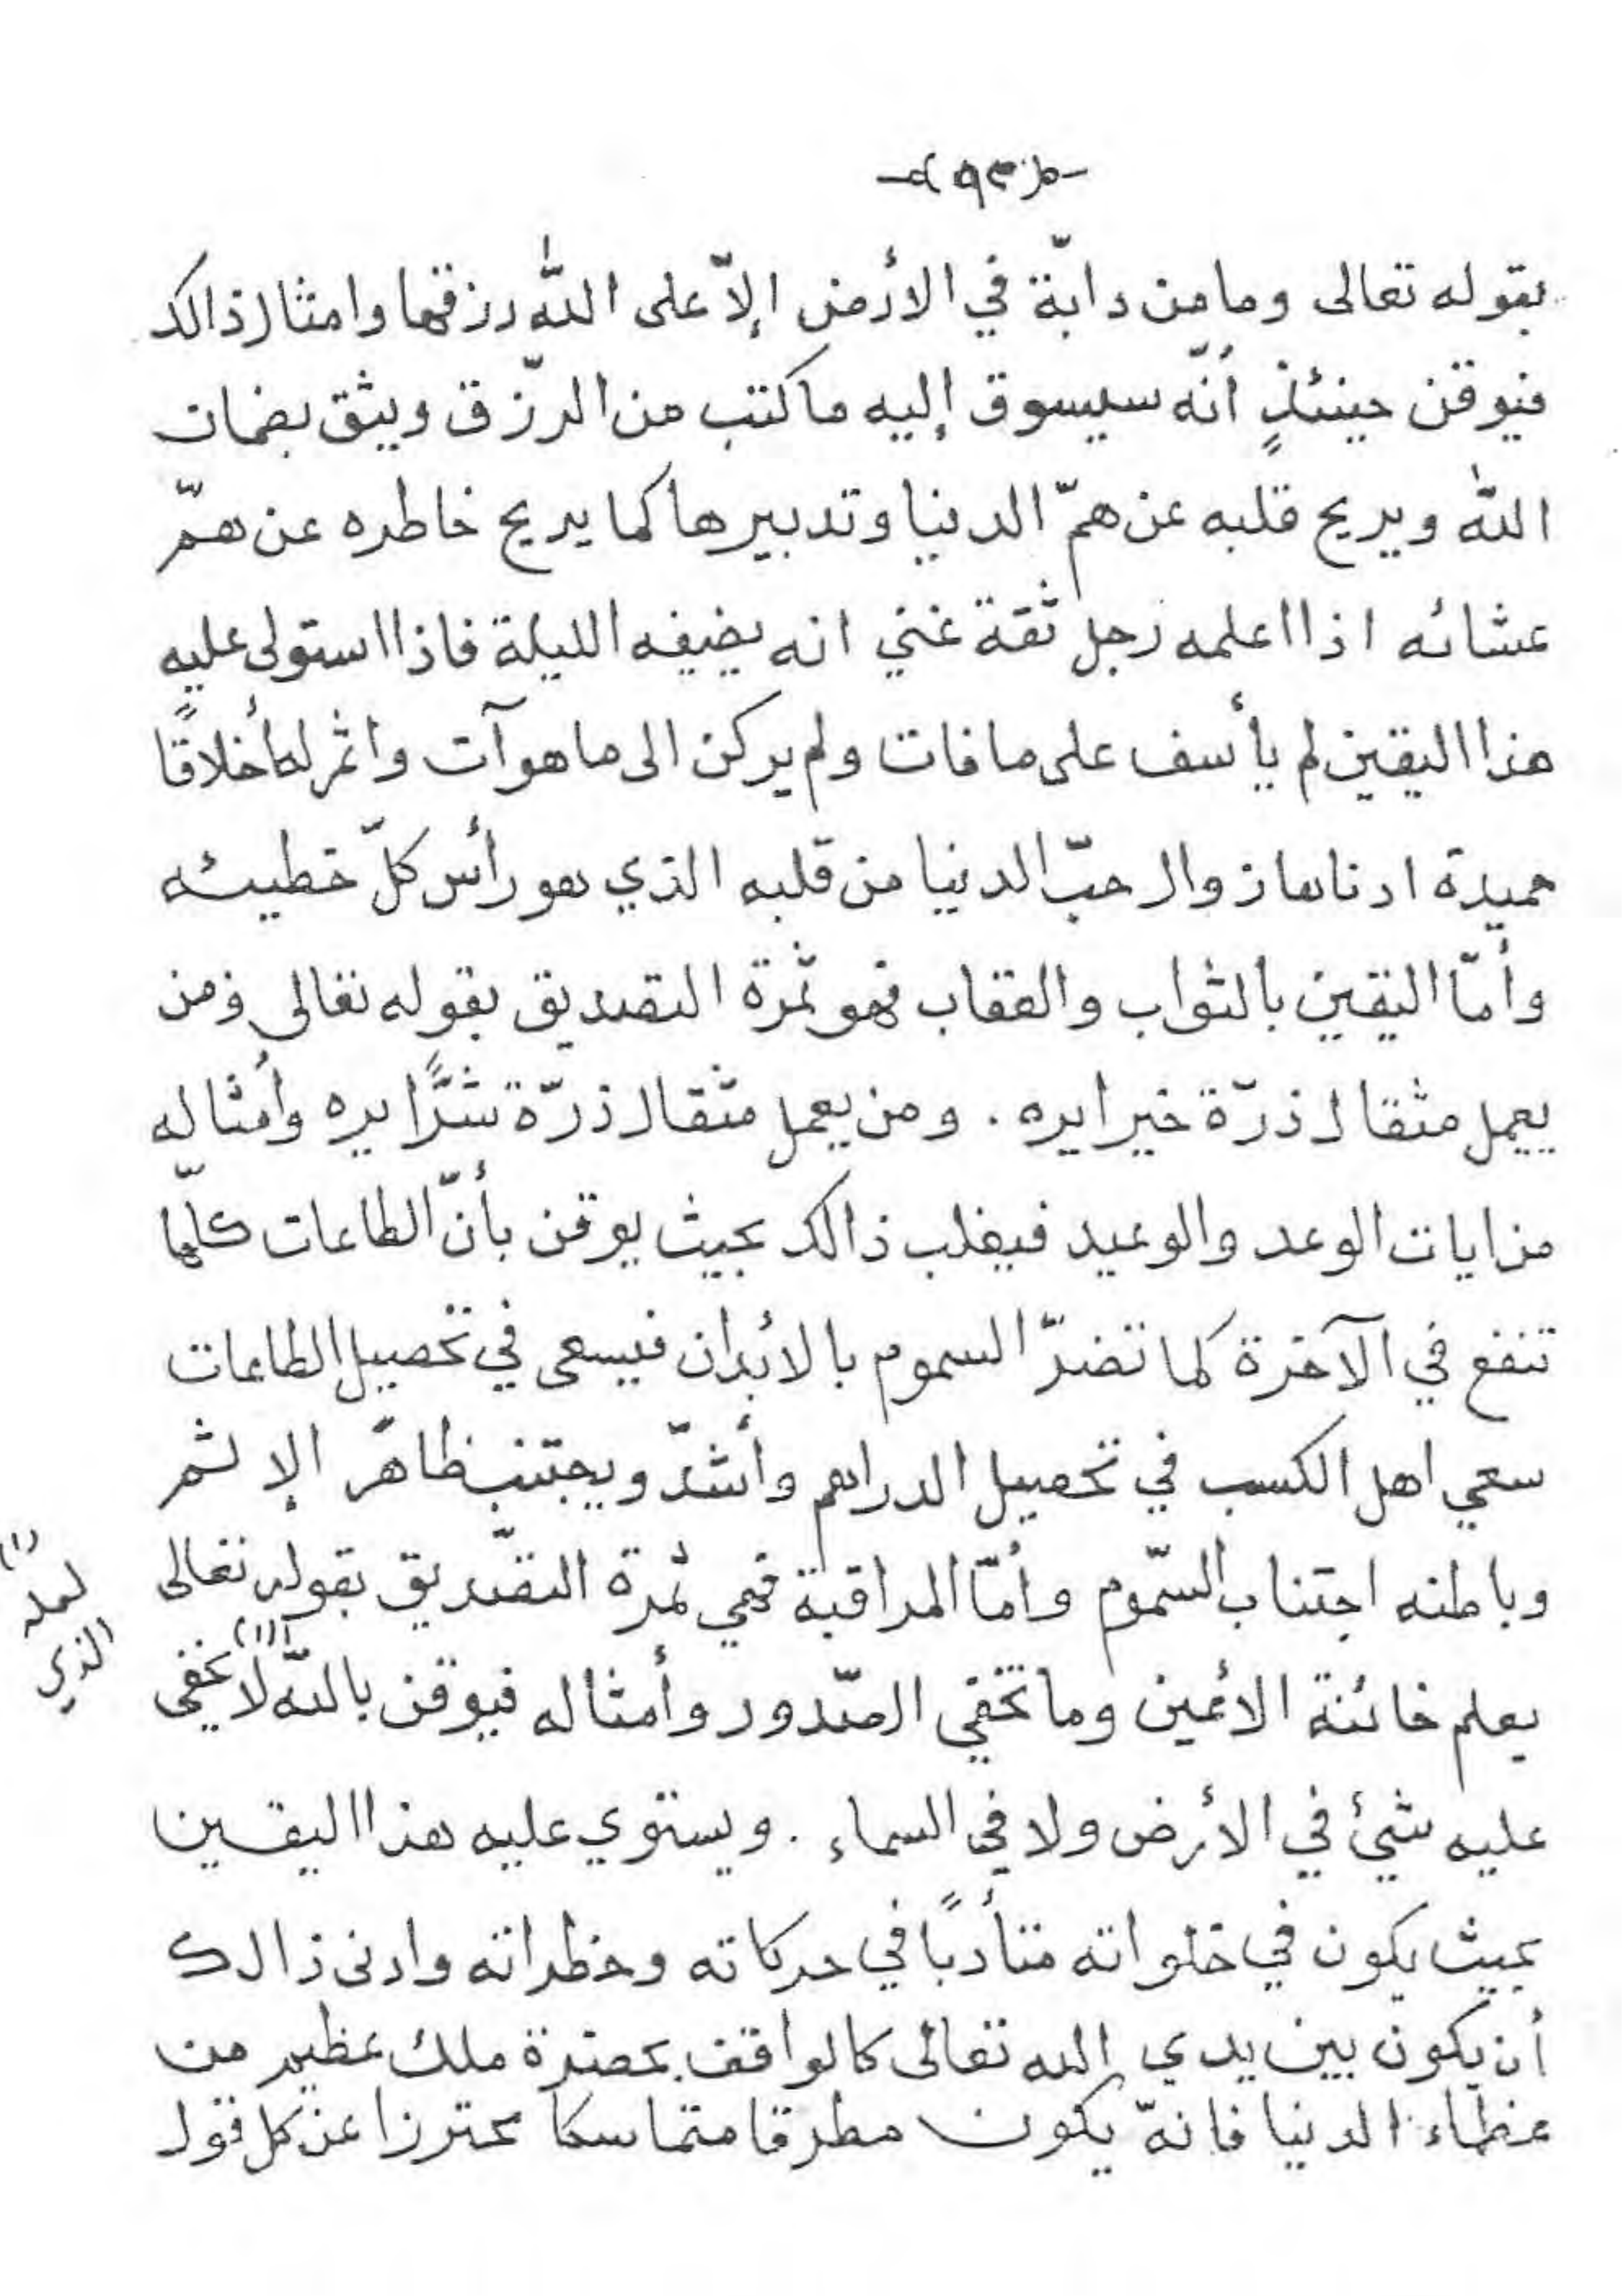 -( ٩٣ )-
بقوله تعالى وما من دابّة في الأرض إلاّ على اللّه رزقها وامثال ذالك
فيوقن حينئذٍ أنّه سيسوق إليه ما كتب من الرّزق ويثق بضمان
اللّه ويريح قلبه عن همّ الدنيا وتدبيرها كما يريح خاطره عن همّ
عشائه اذا اعلمه رجل ثقة غني انه يضيفه الليلة فاذا استولى عليه
هذا اليقين لم يأسف على ما فات ولم يركن الى ما هو آت واثمر له أخلاقًا
حميدة ادناها زوال حبّ الدنيا من قلبه الذي هو رأس كلّ خطيئه
وأمّا اليقين بالثواب والعقاب فهو ثمرة التصديق بقوله تعالى فمن
يعمل مثقال ذرّة خيرا يره . ومن يعمل مثقال ذرّة شرًّا يره وأمثاله
من ايات الوعد والوعيد فيغلب ذالك بحيث يوقن بأنّ الطاعات كلّها
تنفع في الآخرة كما تضرّ السموم بالأبدان فيسعى في تحصيل الطاعات
سعي اهل الكسب في تحصيل الدراهم وأشدّ ويجتنب ظاهر الإثم
وباطنه اجتناب السّموم وأمّا المراقبة فهي ثمرة التصديق بقوله تعالى
يعلم خائنة الأعين وما تخفي الصّدور وأمثاله فيوقن باللّه (١) لا يخفى
(١) لعله
الذي
عليه شيئ في الأرض ولا في السماء . ويستوي عليه هذا اليقين
بحيث يكون في خلواته متأدبًا في حركاته وخطراته وادنى ذالك
أن يكون بين يدي الله تعالى كالواقف بحضرة ملك عظيم من
عظماء الدنيا فانهّ يكون مطرقا متماسكا محترزا عن كل قول